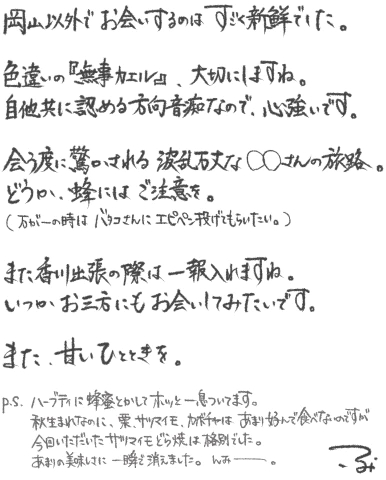 岡山以外でお会いするのはすごく新鮮でした。
色違いの『無事カエル』、大切にしますね。
自他共に認める方向音痴なので、心強いです。
会う度に驚かされる波乱万丈な〇〇さんの旅路。
どうか、蜂にはご注意を。
(万が一の時はバタコさんにエピペン投げてもらいたい。)
また香川出張の際は一報入れますね。
いつか、お三方にもお会いしてみたいです。
また、甘いひとときを。
p.s. ハーブティに蜂蜜とかしてホッと一息ついてます。
秋生まれなのに、栗、サツマイモ、カボチャはあまり好んで食べないのですが
今回いただいたサツマイモどら焼は格別でした。
あまりの美味しさに一瞬で消えました。んみー——。